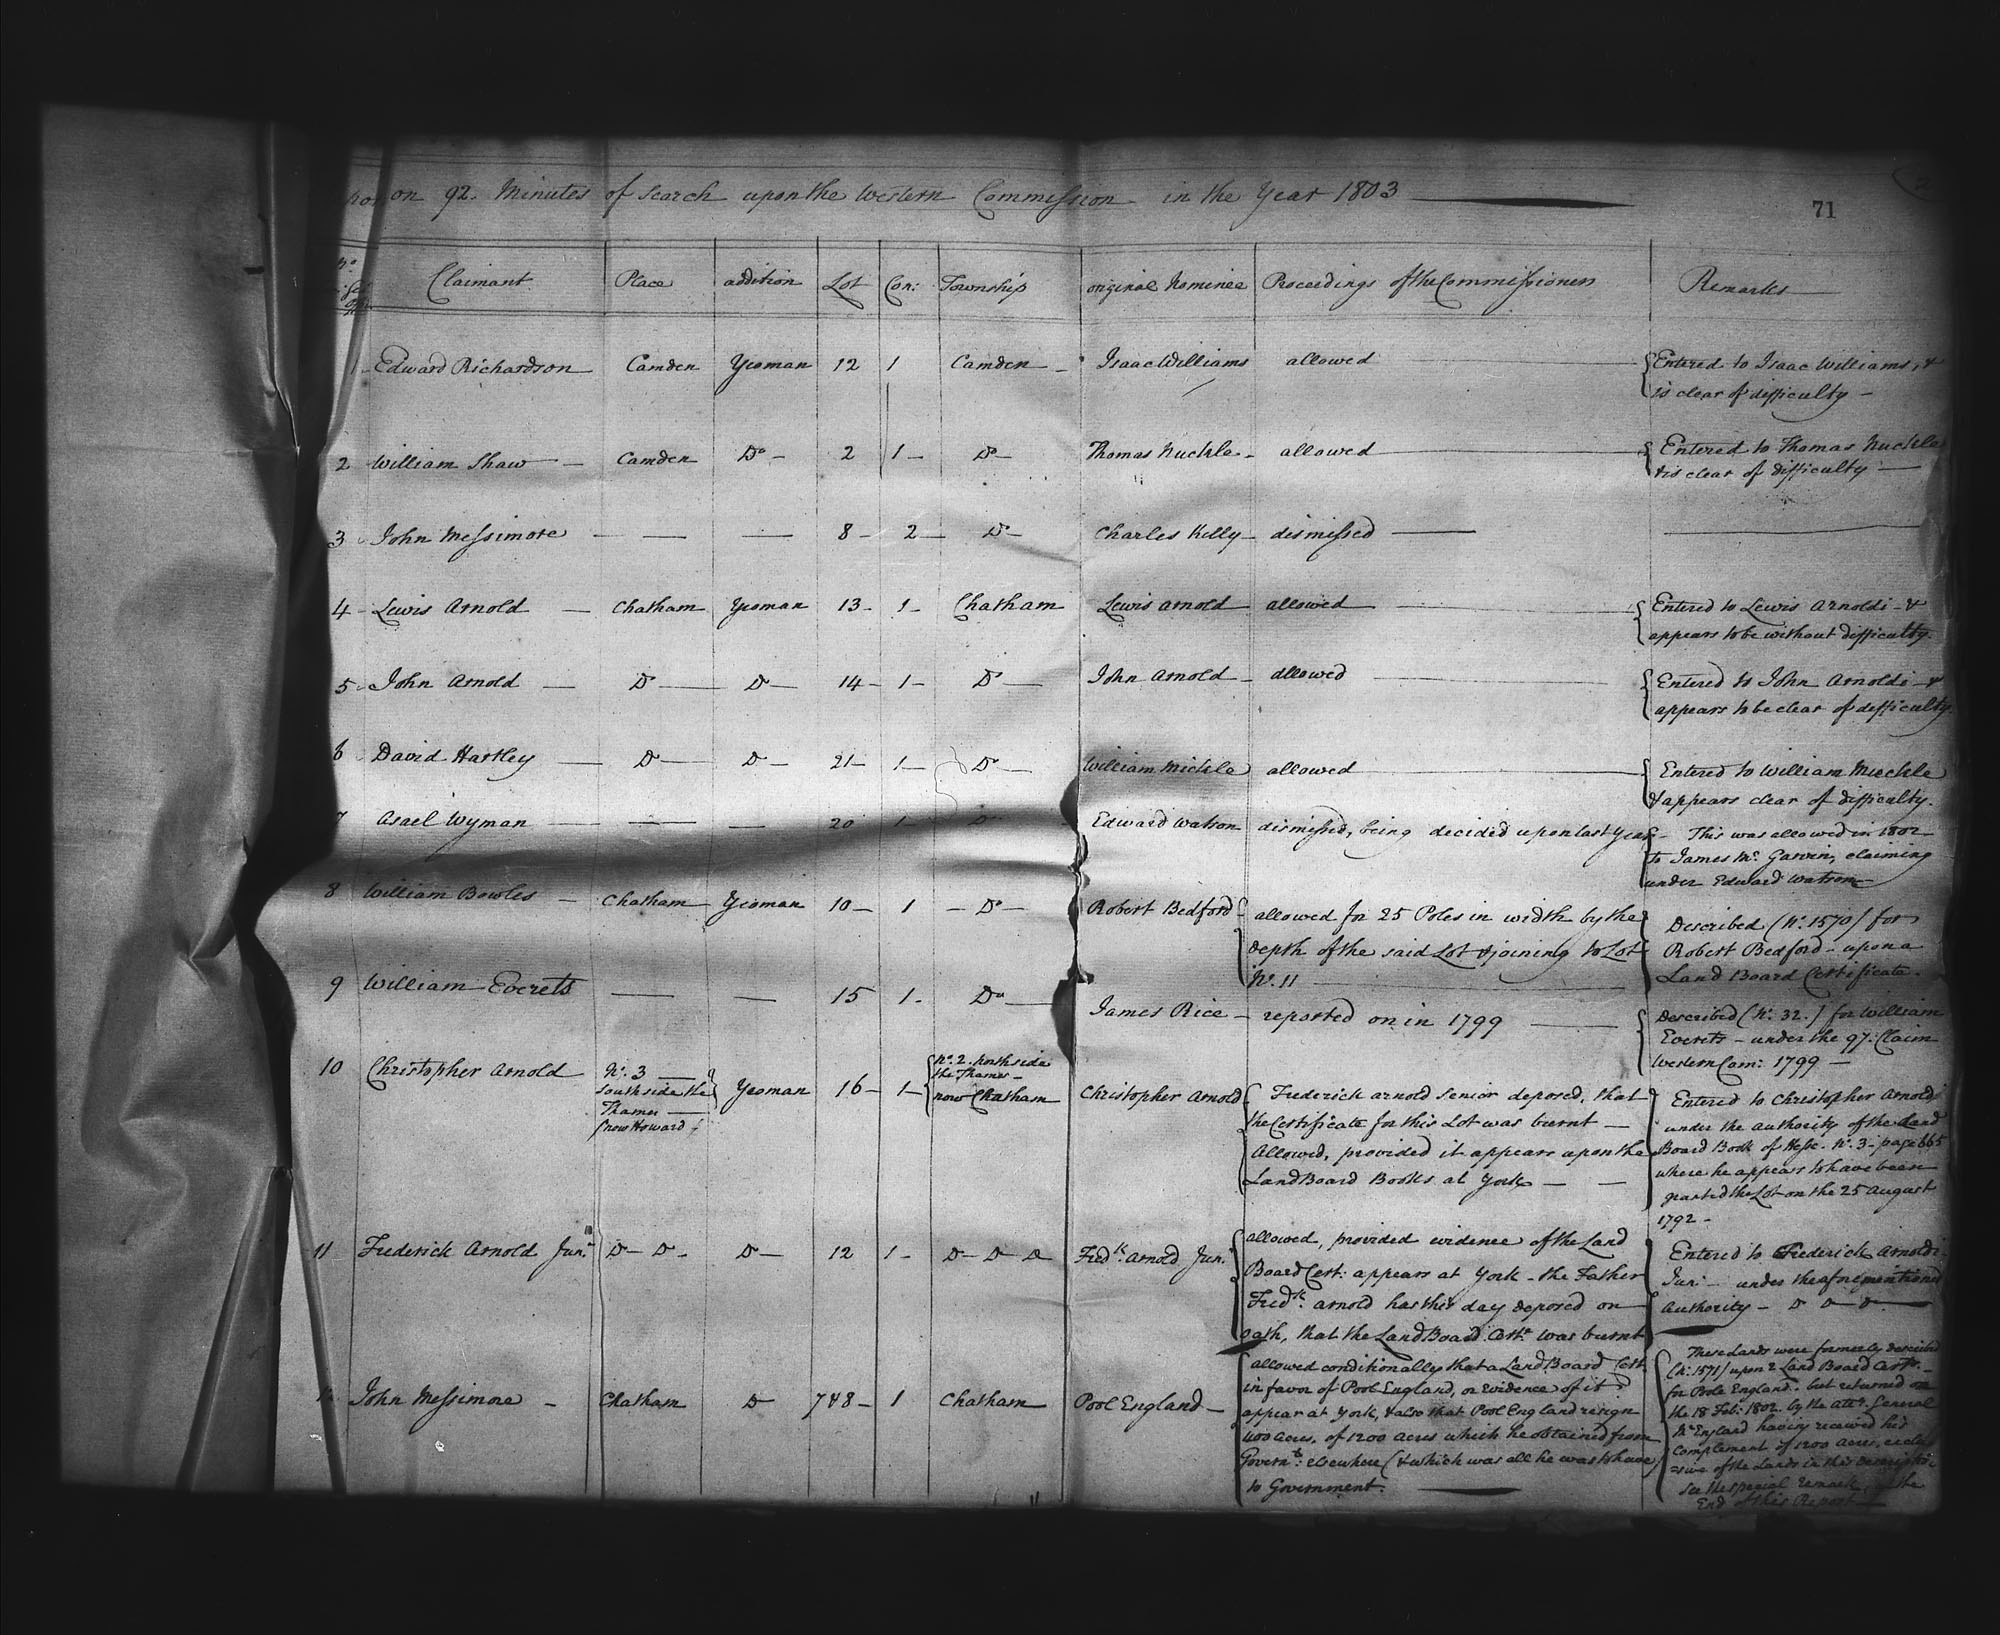 on 92. Minutes of search upon the Western Commission in the Year 1803
71
No. Claimant Place addition Lot Con: Township original Nominee Proceedings of the Commissioners Remarks
1 Edward Richardson Camden Yeoman 12 1 Camden Isaac Williams allowed Entered to Isaac Williams, &
is clear of difficulty
2 William Shaw Camden Do 2 1 Do Thomas Nuckle allowed Entered to Thomas Nuckle
& is clear of difficulty
3 John Messimore 8 2 Do Charles Kelly dismissed
4 Lewis Arnold Chatham Yeoman 13 1 Chatham Lewis Arnold allowed Entered to Lewis Arnoldi &
appears to be without difficulty.
5 John Arnold Do Do 14 1 Do John Arnold allowed Entered to John Arnoldi &
appears to be clear of difficulty.
6 David Hartley Do Do 21 1 Do William Mickle allowed Entered to William Muckle
& appears clear of difficulty.
7 Asael Wyman 20 1 Do Edward Watson dismissed, being decided upon last year This was allowed in 1802
to James Mc. Garvin, claiming
under Edward Watson
8 William Bowles Chatham Yeoman 10 1 Do Robert Bedford allowed for 25 Poles in width by the
depth of the said Lot adjoining to Lot
No. 11
Described (No. 1570) for
Robert Bedford upon a
Land Board Certificate.
9 William Everets 15 1 Do James Rice reported on in 1799 Described (No. 32.) for William
Everets under the 97. Claim
Western Com: 1799
10 Christopher Arnold No. 3
South side the
Thames
(now Howard)
Yeoman 16 1 No. 2. North side
the Thames
now Chatham
Christopher Arnold Frederick Arnold Senior deposed, that
the Certificate for this Lot was burnt
Allowed, provided it appears upon the
Land Board Books at York
Entered to Christopher Arnoldi
under the authority of the Land
Board Book of Hesse. No. 3. page 665
where he appears to have been
granted the Lot on the 25 August
1792
11 Frederick Arnold Junr. Do Do Do 12 1 Do Do Do Fredk. Arnold Junr. allowed, provided evidence of the Land
Board Cert: appears at York the Father
Fredk. Arnold has this day deposed on
oath, that the Land Board Certe. was burnt
Entered to Frederick Arnoldi
Jun: under the aforementioned
authority Do Do Do
12 John Messimore Chatham Do 7 & 8 1 Chatham Pool England allowed conditionally that a Land Board Cert.
in favor of Pool England, or Evidence of it
appear at York, & also that Pool England resign
400 acres, of 1200 acres which he obtained from
Governt. elsewhere (& which was all he was to have)
to Government.
These Lands were formerly described
(No. 1571) upon 2 Land Board Certs.
for Poole England. but returned on
the 18 Feb: 1802. by the Atty. General
Mr. England having received his
complement of 1200 acres, exclu
=sive of the Lands in this Description
See the special remark, at the
End of this Report